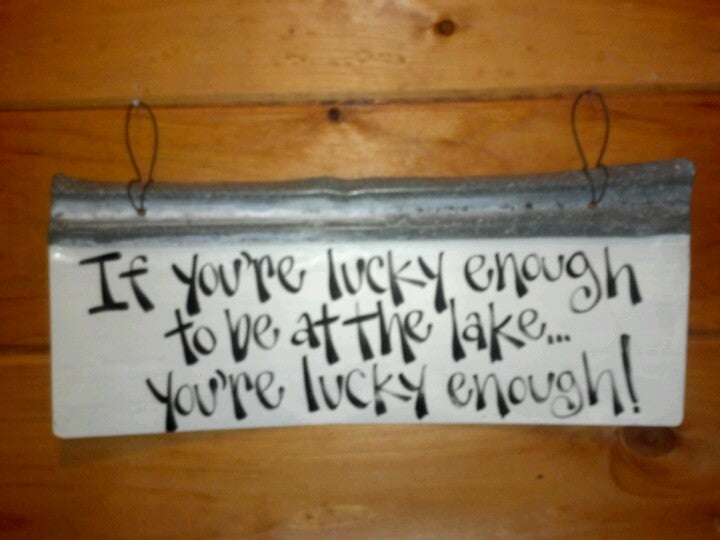 If you're lucky enough
to be at the lake...
you're lucky enough!